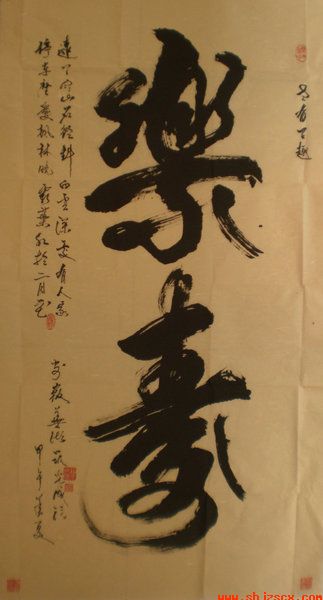 樂壽
遠上寒山石徑斜 白雲深處有人家
停車坐愛楓林晚 霜葉紅於二月花
安徽蕪湖
甲午 夏
www.shjzscx.com